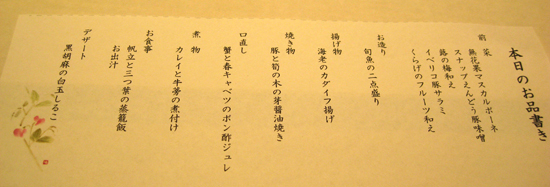 本日のお品書き
前菜
無花果マスカルポーネ
スナップえんどう豚味噌
蕗の梅和え
イベリコ豚サラミ
くらげのフルーツ和え
お造り
旬魚の二点盛り
揚げ物
海老のカダイフ揚げ
焼き物
豚と筍の木の芽醤油焼き
口直し
蟹と春キャベツのポン酢ジュレ
煮物
カレイと牛蒡の煮付け
お食事
帆立と三つ葉の蒸籠飯
お出汁
デザート
黒胡麻の白玉しるこ